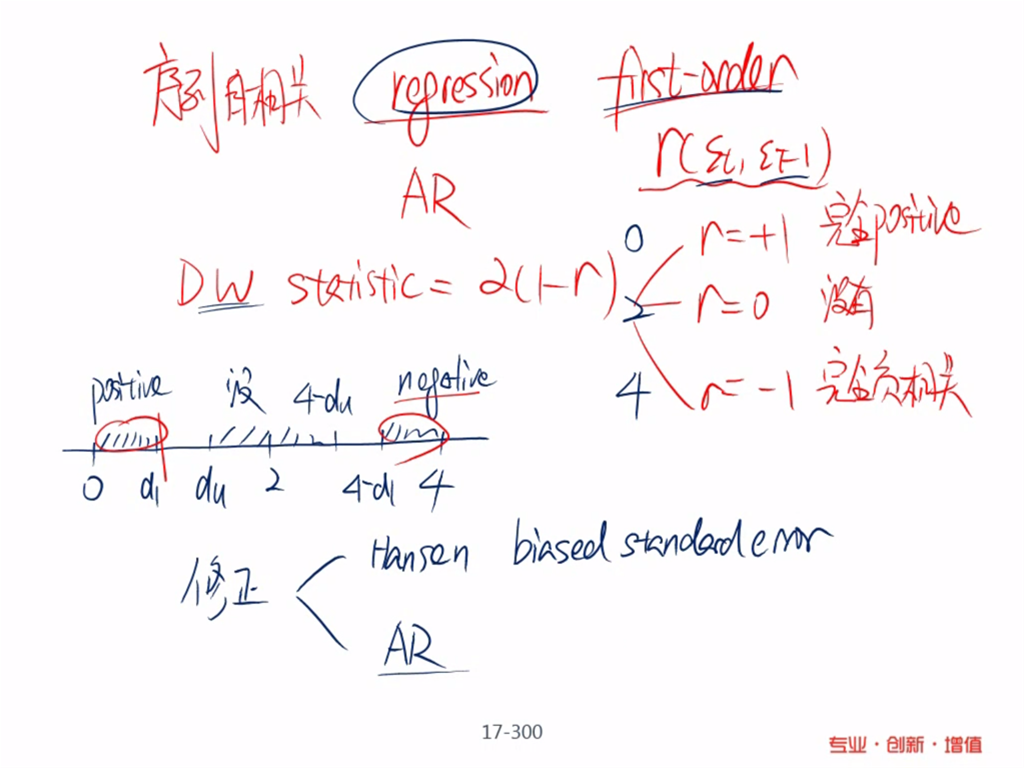 序列自相关 regression first-order
r(εt, εt-1)
AR
0 r=+1 完全positive
DW statistic = 2(1-r) 2 r=0 没有
4 r=-1 完全负相关
positive 没 4-du negative
0 dl du 2 4-dl 4
修正
Hansen biased standard error
AR
17-300
专业·创新·增值